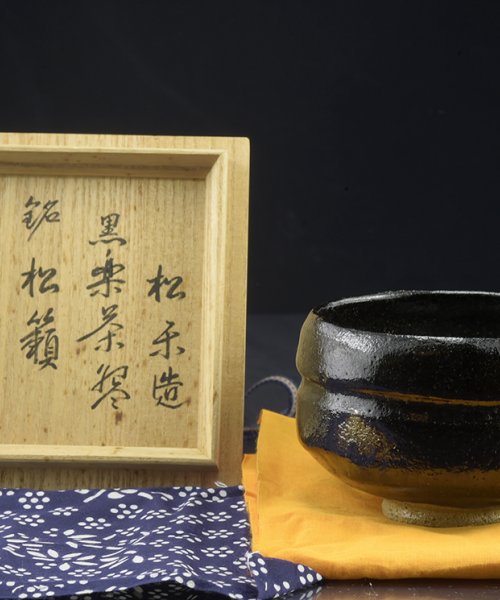 松禾造
黒楽茶碗
銘 松籟